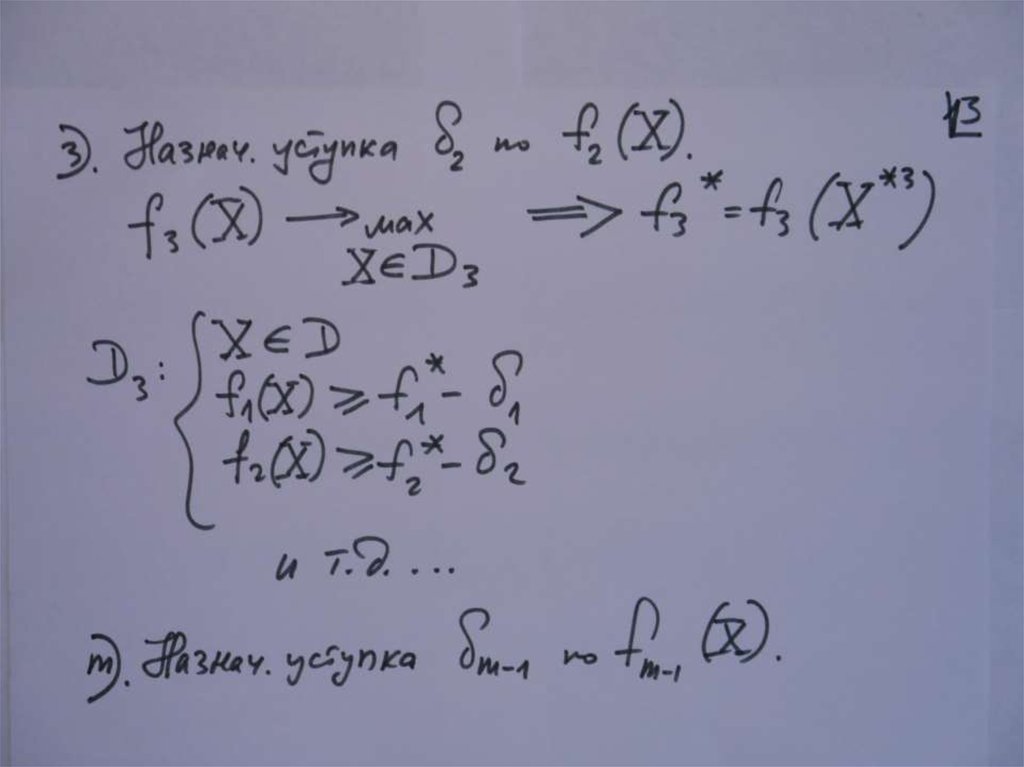 13
3). Назнач. уступка δ₂ по f₂(X).
f₃(X) → max ⟹ f₃* = f₃(X*³)
X∈D₃
D₃: { X ∈ D
f₁(X) ⩾ f₁* - δ₁
f₂(X) ⩾ f₂* - δ₂
и т.д. ...
m). Назнач. уступка δₘ₋₁ по fₘ₋₁(X).